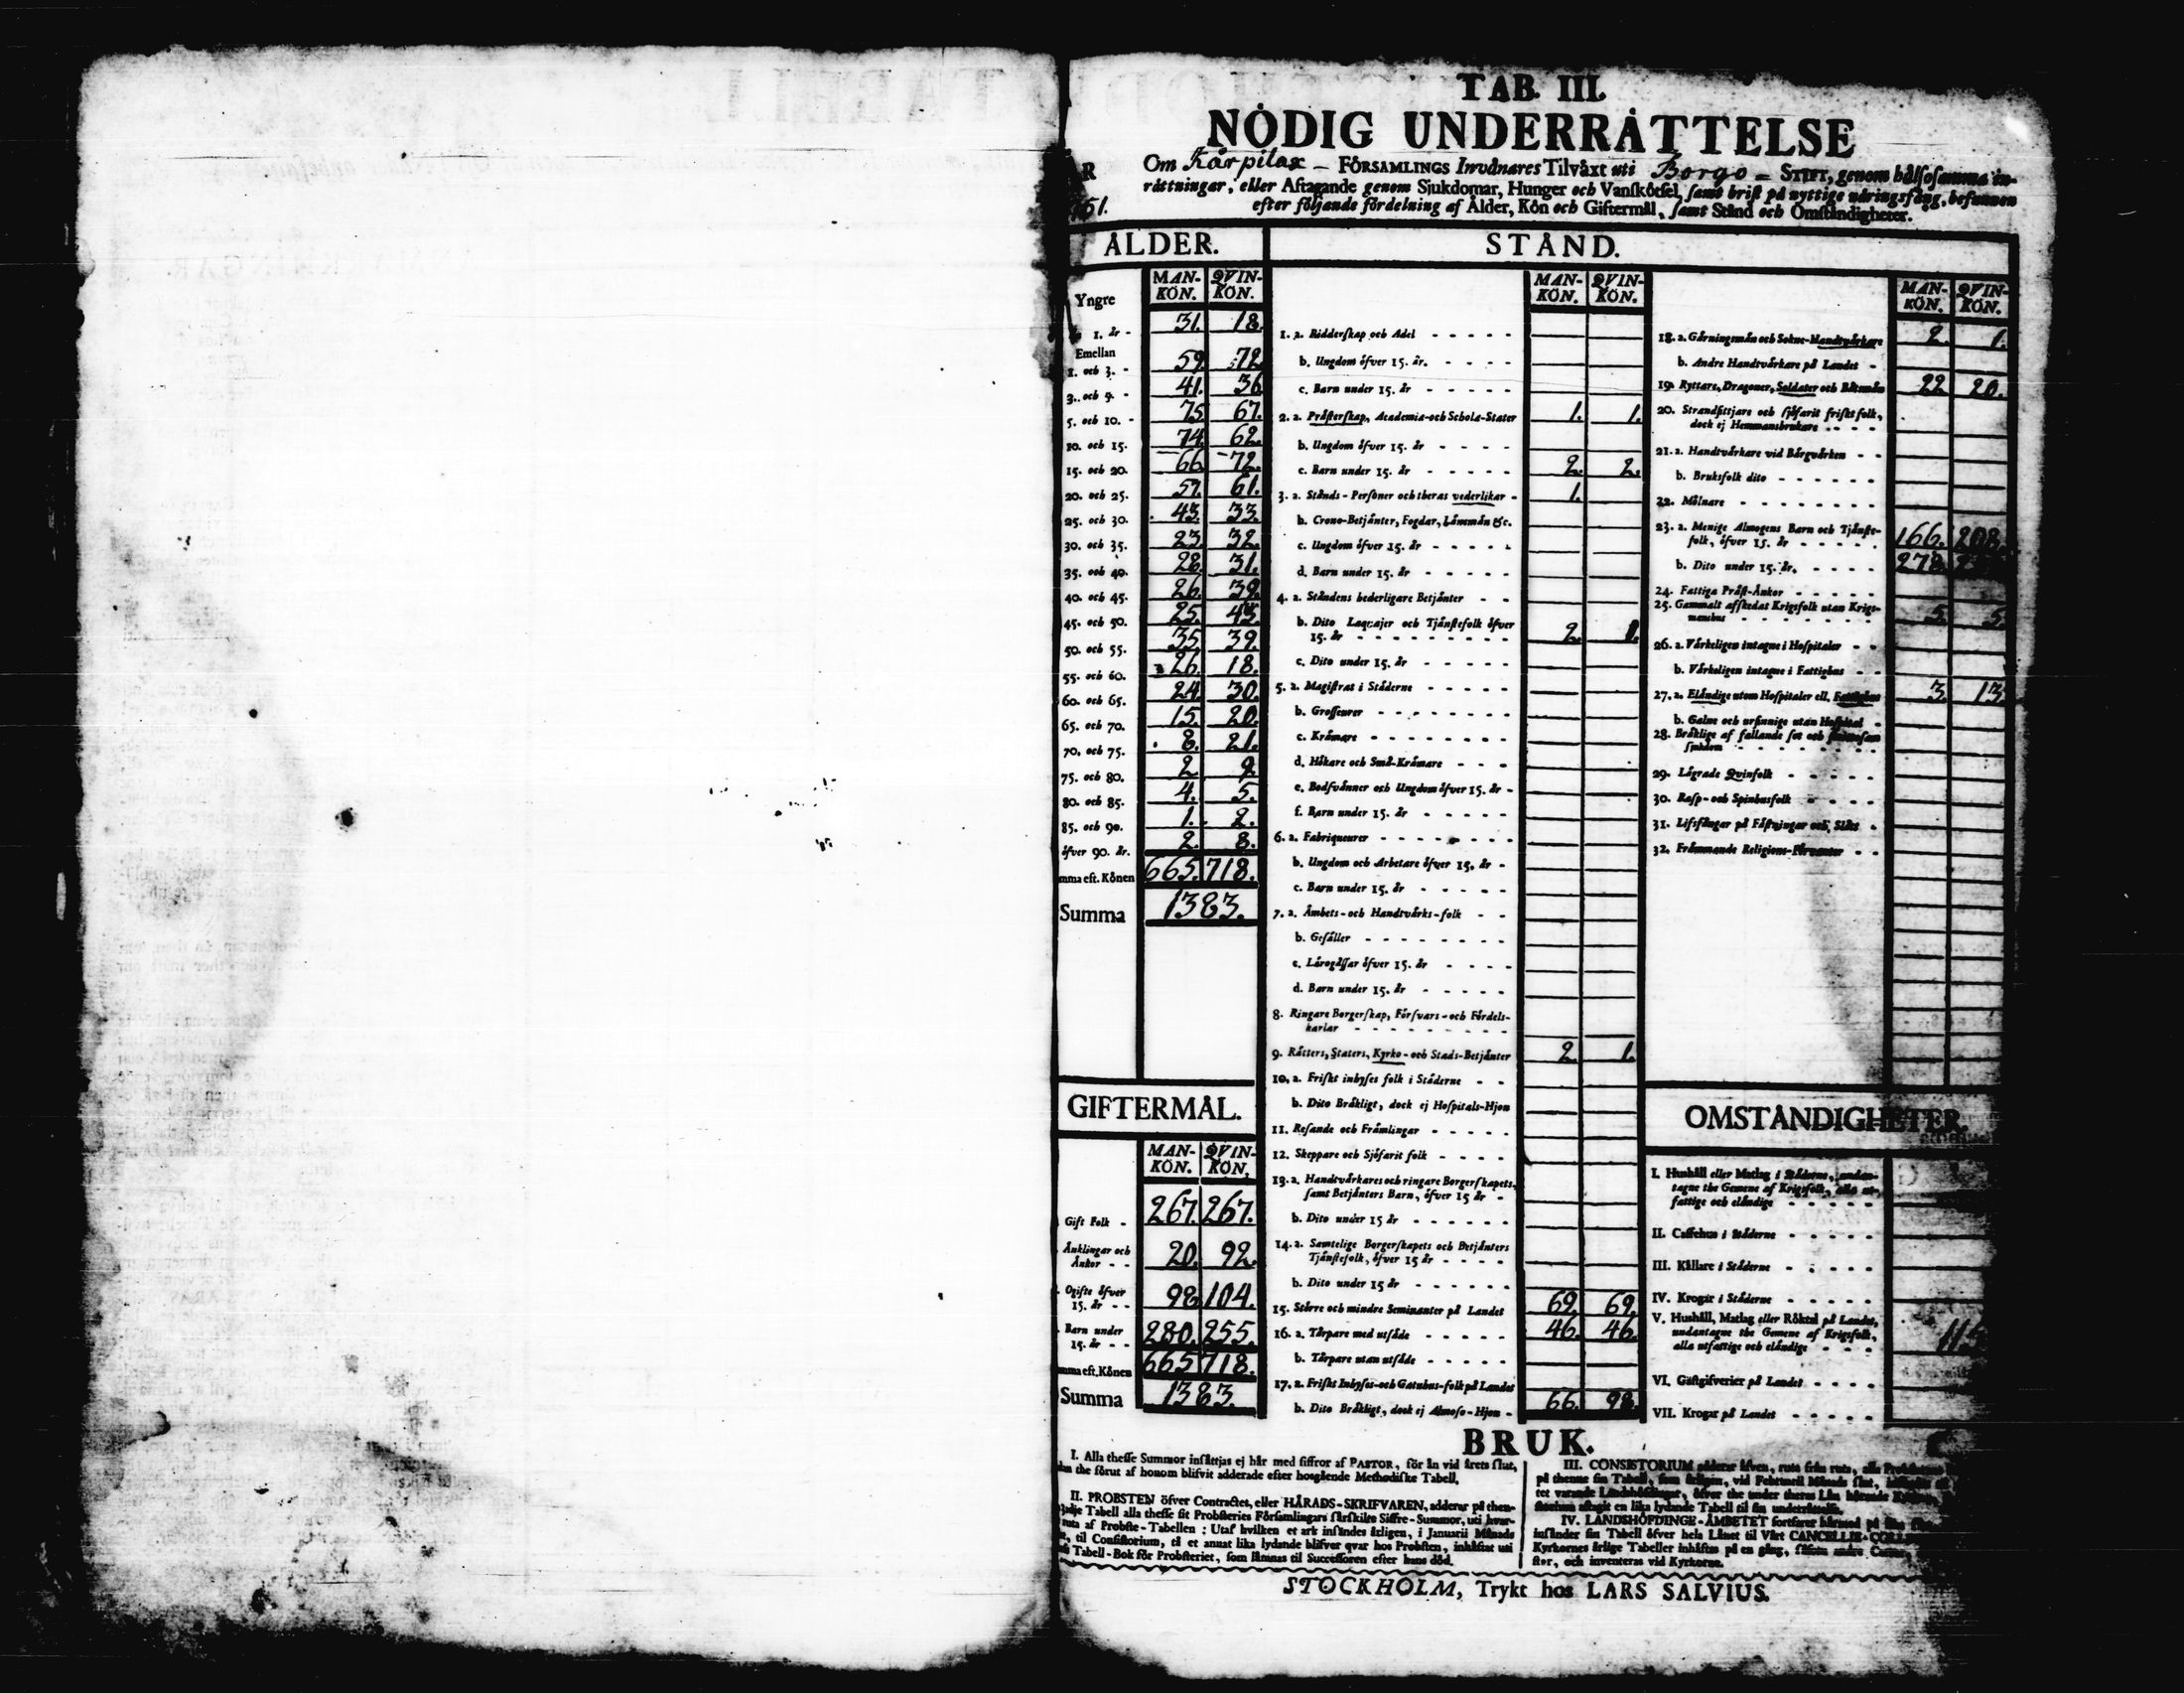 TAB. III.
NÖDIG UNDERRÄTTELSE
Om Kärpilax – FÖRSAMLINGS Invånares Tilväxt uti Borgo – STIFT, genom hälsosamma in-
rättningar, eller Aftagande genom Sjukdomar, Hunger och Vanskötsel, samt brist på nyttige näringsfång, befunnen
51. efter följande fördelning af Ålder, Kön och Giftermål, samt Stånd och Omständigheter.
ÅLDER.
MAN-KÖN. QVIN-KÖN.
Yngre
1. år - 31. 18.
Emellan
1. och 3. - 59. 72.
3. och 5. - 41. 36
5. och 10. - 75 67.
10. och 15. 74. 62.
15. och 20. 66 72.
20. och 25. 57. 61.
25. och 30. 43. 33.
30. och 35. 23. 32.
35. och 40. 28. 31.
40. och 45. 26. 39.
45. och 50. 25. 43.
50. och 55. 35. 39.
55. och 60. 26. 18.
60. och 65. 24. 30.
65. och 70. 15. 20.
70. och 75. 8. 21.
75. och 80. 2 9
80. och 85. 4. 5.
85. och 90. 1. 2.
öfver 90. år. 2. 8.
mma eft. Könen 665. 718.
Summa 1383.
GIFTERMÅL.
MAN-KÖN. QVIN-KÖN.
Gift Folk - 267. 267.
Änklingar och
Änkor - - 20. 92.
Ogifte öfver
15. år - - 98 104.
Barn under
15. år - - 280. 255.
mma eft. Könen 665 718.
Summa 1383.
STÅND.
MAN-KÖN. QVIN-KÖN.
1. a. Ridderskap och Adel - - - - -
b. Ungdom öfver 15. år. - - - -
c. Barn under 15. år - - - - -
2. a. Prästerskap, Academia- och Schola-Stater 1. 1.
b. Ungdom öfver 15. år - - - -
c. Barn under 15. år - - - - - 2. 2.
3. a. Stånds-Personer och theras vederlikar - 1.
b. Crono-Betjänter, Fogdar, Länsmän &c.
c. Ungdom öfver 15. år - - - - -
d. Barn under 15. år - - - - -
4. a. Ståndens hederligare Betjänter - -
b. Dito Laqvajer och Tjänstefolk öfver
15. år - - - - - - - - - 2. 1.
c. Dito under 15. år - - - - -
5. a. Magistrat i Städerne - - - - -
b. Grosseurer - - - - - - - -
c. Krämare - - - - - - - -
d. Hökare och Små-Krämare - - -
e. Bodsvänner och Ungdom öfver 15. år -
f. Barn under 15. år - - - - -
6. a. Fabriqueurer - - - - - - - -
b. Ungdom och Arbetare öfver 15. år -
c. Barn under 15. år - - - - -
7. a. Ämbets- och Handtvärks-folk - -
b. Gesäller - - - - - - - -
c. Lärogåssar öfver 15. år - - - -
d. Barn under 15. år - - - - -
8. Ringare Borgerskap, Försvars- och Fördels-
karlar - - - - - - - - -
9. Rätters, Staters, Kyrko- och Stads-Betjänter 2. 1.
10. a. Friskt inhyses folk i Städerne - -
b. Dito Bräkligt, dock ej Hospitals-Hjon
11. Resande och Främlingar - - - - -
12. Skeppare och Sjöfarit folk - - - -
13. a. Handtvärkares och ringare Borgerskapets,
samt Betjänters Barn, öfver 15 år -
b. Dito under 15 år - - - - -
14. a. Samtelige Borgerskapets och Betjänters
Tjänstefolk, öfver 15 år - - - -
b. Dito under 15 år - - - - -
15. Större och mindre Seminanter på Landet 69. 69.
16. a. Torpare med utsäde - - - - - 46. 46.
b. Torpare utan utsäde - - - - -
17. a. Friskt Inhyses- och Gatuhus-folk på Landet
b. Dito Bräkligt, dock ej Almoso-Hjon - 66. 98.
MAN-KÖN. QVIN-KÖN.
18. a. Gärningsmän och Sokne-Handtvärkare 2. 1.
b. Andre Handtvärkare på Landet -
19. Ryttare, Dragoner, Soldater och Båtsmän 22 20.
20. Strandsittjare och sjöfarit friskt folk,
dock ej Hemmansbrukare - - - -
21. a. Handtvärkare vid Bärgvärken - -
b. Bruksfolk dito - - - - - -
22. Mölnare - - - - - - - -
23. a. Menige Almogens Barn och Tjänste-
folk, öfver 15. år - - - - - 166. 208.
b. Dito under 15. år. - - - - 278.
24. Fattiga Präst-Änkor - - - - -
25. Gammalt afskedat Krigsfolk utan Krigs-
manshus - - - - - - - 5 5
26. a. Värkeligen intagne i Hospitaler - -
b. Värkeligen intagne i Fattighus - -
27. a. Eländige utom Hospitaler ell. Fattighus 3. 13
b. Galne och ursinnige utan Hospital -
28. Bräklige af fallande sot och
sjukdom - - - - - - - -
29. Lägrade Qvinfolk - - - - -
30. Rasp- och Spinhusfolk - - - -
31. Lifsfångar på Fästningar och Slått -
32. Främmande Religions-Förvanter - -
OMSTÄNDIGHETER.
I. Hushåll eller Matlag i Städerne, undan-
tagne the Gemene af Krigsfolk, alla ut-
fattige och eländige - - - - -
II. Caffehus i Städerne - - - - -
III. Källare i Städerne - - - - -
IV. Krogar i Städerne - - - - -
V. Hushåll, Matlag eller Röktal på Landet,
undantagne the Gemene af Krigsfolk,
alla utfattige och eländige - - - 115
VI. Gästgifverier på Landet - - - -
VII. Krogar på Landet - - - - -
BRUK.
I. Alla thesse Summor insättjas ej här med siffror af PASTOR, för än vid årets slut,
the förut af honom blifvit adderade efter hosgående Methodiske Tabell.
II. PROBSTEN öfver Contractet, eller HÄRADS-SKRIFVAREN, adderar på then-
Tabell alla thesse sit Probsteries Församlingars särskilte Siffre-Summor, uti hvar-
ruta af Probste-Tabellen; Utaf hvilken et ark insändes årligen, i Januarii Månads
til Consistorium, tå et annat lika lydande blifver qvar hos Probsten, inhäftat uti
Tabell-Bok för Probsteriet, som lämnas til Successoren efter hans död.
III. CONSISTORIUM adderar äfven, ruta från ruta, alla
på thenne sin Tabell, som årligen, vid Februarii Månads slut,
tet varande Landshöfdingar, öfver the under theras Län hörande
en lika lydande Tabell til sin underrättelse.
IV. LANDSHÖFDINGE-ÄMBETET fortfarer härmed på
insänder sin Tabell öfver hela Länet til Vårt CANCELLIE-
Kyrkornes årlige Tabeller inhäftas på en gång,
ster, och inventeras vid Kyrkorne.
STOCKHOLM, Trykt hos LARS SALVIUS.